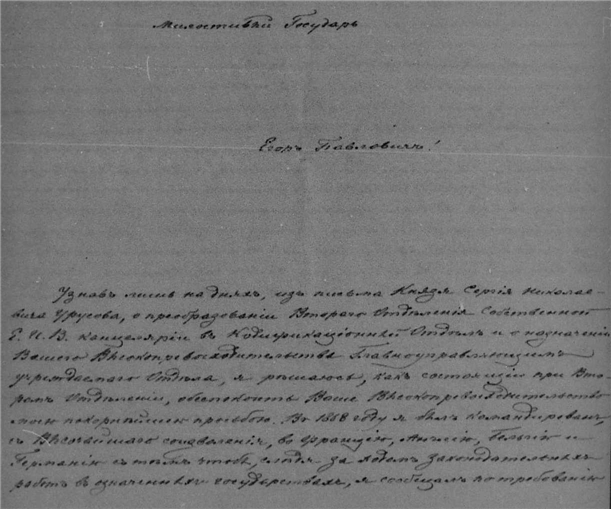 Милостивый Государь
Егоръ Павловичъ!
Узнавъ лишь на дняхъ, изъ письма Князя Сергія Николае-
вича Урусова, о преобразованіи Втораго Отдѣленія Собственной
Е. И. В. канцеляріи въ Кодификаціонный Отдѣлъ и о назначеніи
Вашего Высокопревосходительства Главноуправляющимъ
учреждаемаго Отдѣла, я рѣшаюсь, какъ состоящій при Вто-
ромъ Отдѣленіи, обезпокоить Ваше Высокопревосходительство
моею покорнѣйшею просьбою. Въ 1868 году я былъ командированъ,
съ Высочайшаго соизволенія, во Францію, Англію, Бельгію и
Германію съ тѣмъ чтобы, слѣдя за ходомъ законодательныхъ
работъ въ означенныхъ государствахъ, я сообщалъ по требованію